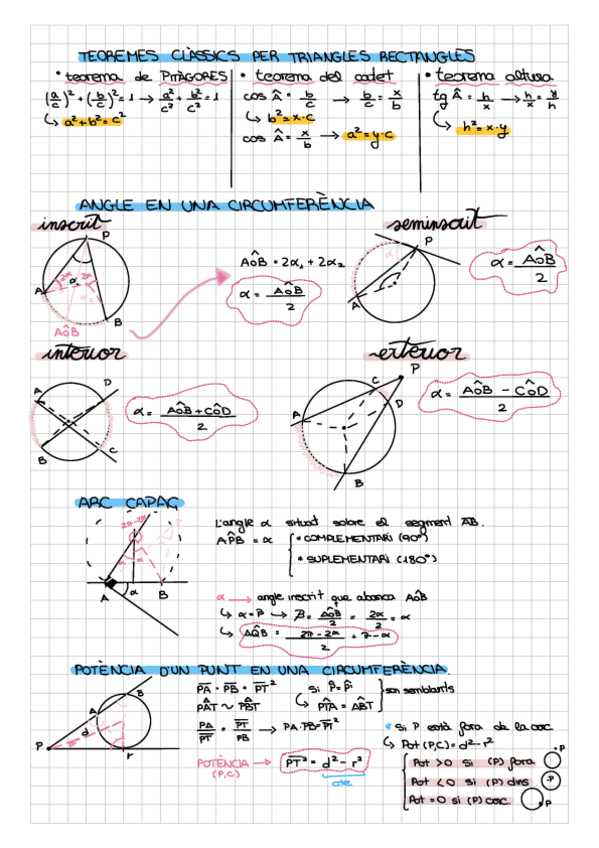 TEOREMES CLÀSSICS PER TRIANGLES RECTANGLES
• teorema de PITÀGORES
(a/c)² + (b/c)² = 1 → a²/c² + b²/c² = 1
↳ a²+b²=c²
• teorema del catet
cos Â = b/c → b/c = x/b
↳ b²=x·c
cos Â = x/b → a²=y·c
• teorema altura
tg Â = h/x → h/x = y/h
↳ h²=x·y
ANGLE EN UNA CIRCUMFERÈNCIA
inscrit
P
A
B
AÔB
AÔB = 2α₁ + 2α₂
α = AÔB/2
seminscrit
P
A
α = AÔB/2
interior
A
D
B
C
α = AÔB+CÔD/2
exterior
P
C
D
A
B
α = AÔB - CÔD/2
ARC CAPAÇ
2π-2α
A
α
B
L'angle α situat sobre el segment AB.
APB = α
• COMPLEMENTARI (90º)
• SUPLEMENTARI (180º)
α → angle inscrit que abarca AÔB
↳ α=β → β = AÔB/2 = 2α/2 = α
↳ AQB = 2π-2α/2 = π-α
POTÈNCIA D'UN PUNT EN UNA CIRCUMFERÈNCIA.
B
A
P
d
r
PA · PB = PT²
PAT ~ PBT
PA/PT = PT/PB → PA·PB=PT²
si P=P
↳ PTA = ABT
son semblants
POTÈNCIA (P,C) → PT² = d² - r²
cte
* Si P està fora de la circ
↳ Pot (P,C) = d² - r²
Pot >0 si (P) fora
Pot <0 si (P) dins
Pot =0 si (P) circ
•P
P
•P